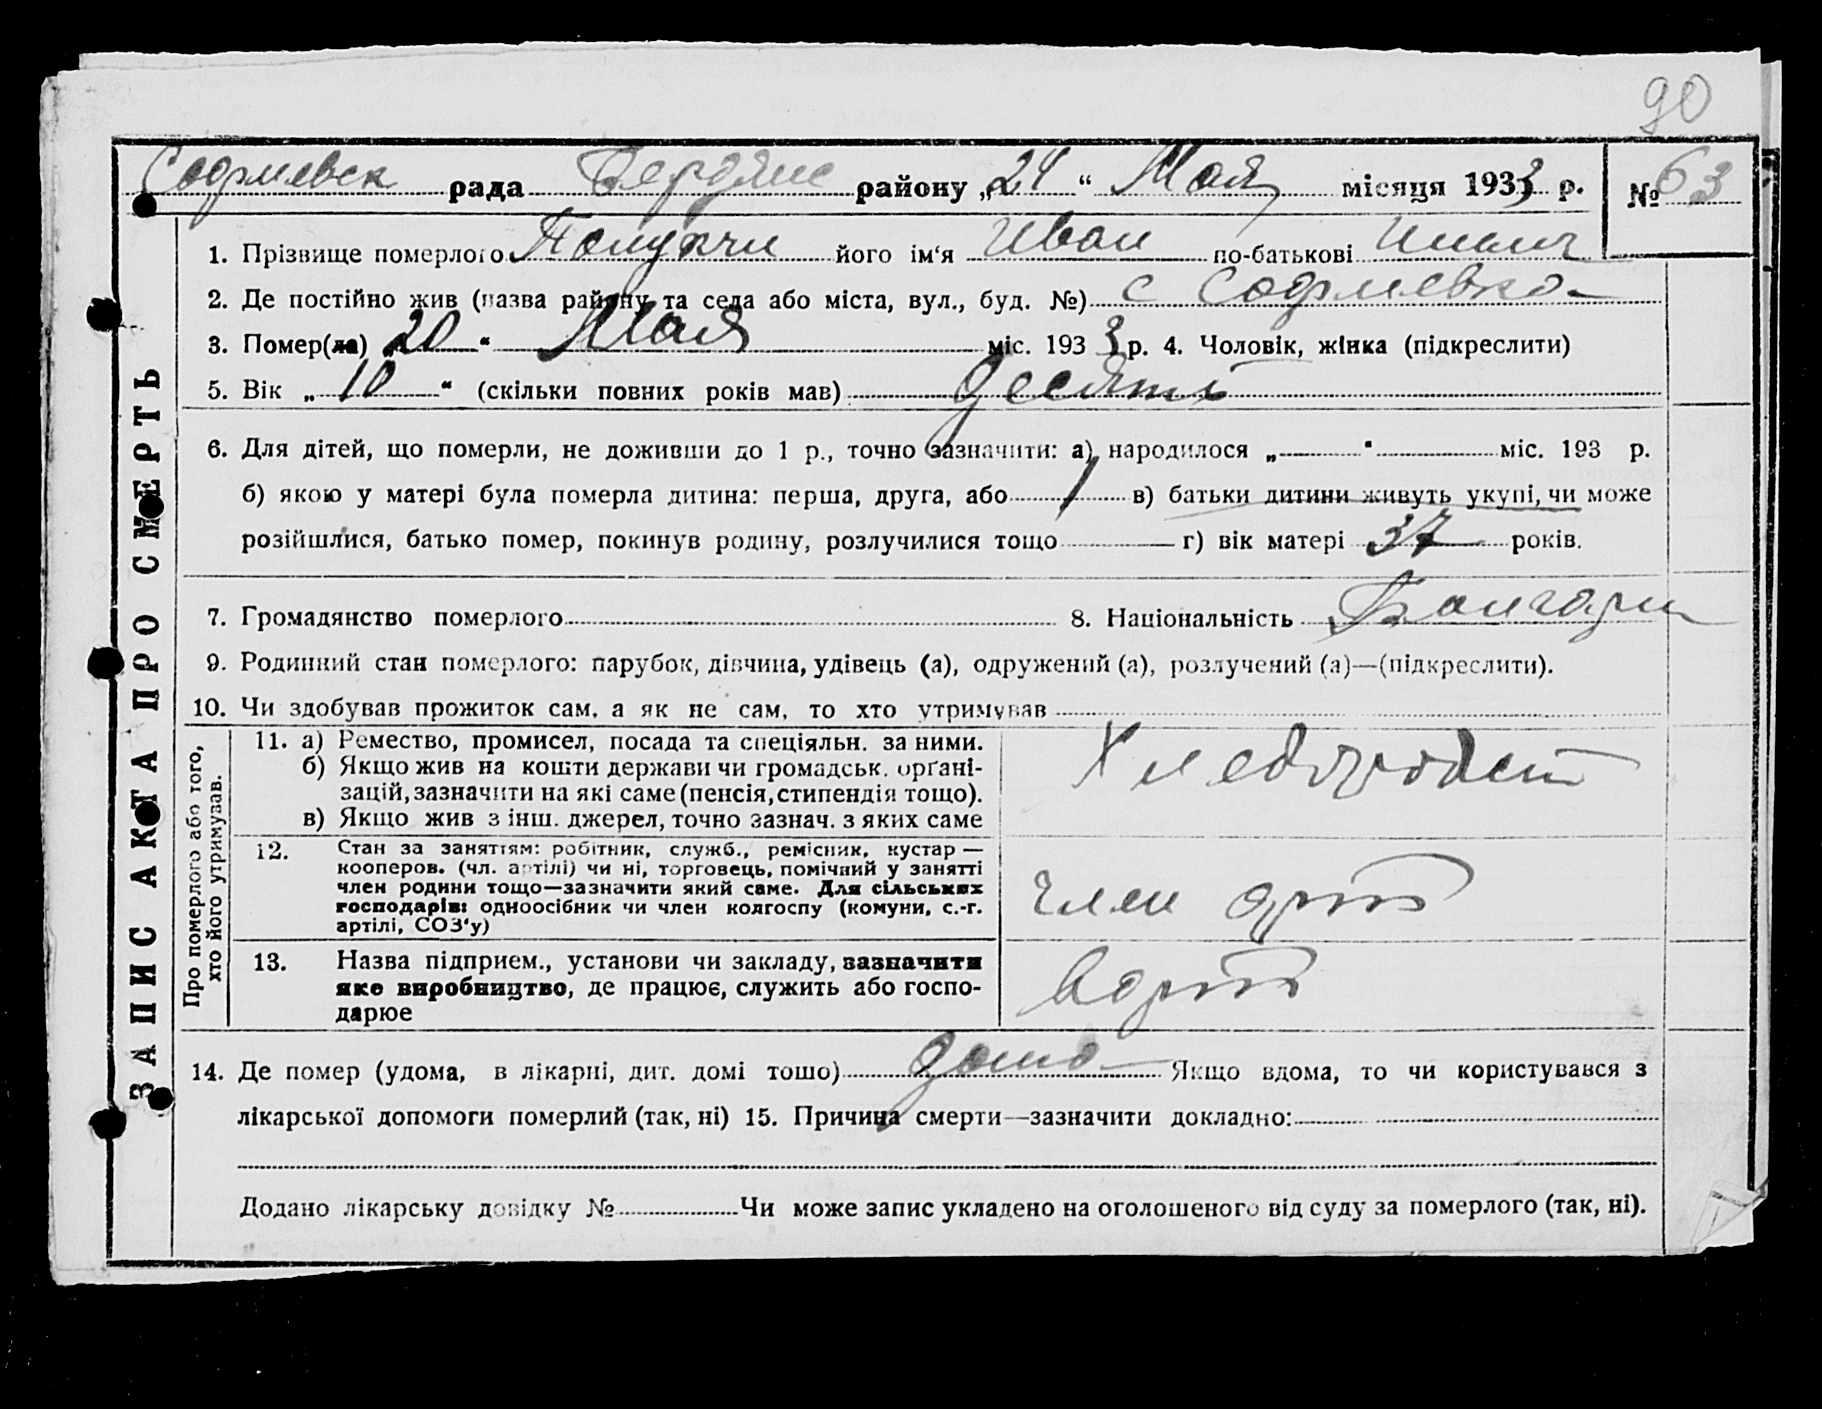 90
Софиевск рада Бердянс району „24“ Мая місяця 1933 р. № 63
ЗАПИС АКТА ПРО СМЕРТЬ
1. Прізвище померлого його ім‘я Иван по-батькові
2. Де постійно жив (назва району та села або міста, вул., буд. №) с Софиевка
3. Помер(ла) „20“ Мая міс. 1933 р. 4. Чоловік, жінка (підкреслити)
5. Вік „10“ (скільки повних років мав) десять
6. Для дітей, що померли, не доживши до 1 р., точно зазначити: а) народилося „ “ міс. 193 р.
б) якою у матері була померла дитина: перша, друга, або в) батьки дитини живуть укупі, чи може
розійшлися, батько помер, покинув родину, розлучилися тощо г) вік матері 37 років.
7. Громадянство померлого 8. Національність Болгари
9. Родинний стан померлого: парубок, дівчина, удівець (а), одружений (а), розлучений (а)—(підкреслити).
10. Чи здобував прожиток сам, а як не сам, то хто утримував
Про померлого або того,
хто його утримував.
11. а) Ремество, промисел, посада та спеціяльн. за ними.
б) Якщо жив на кошти держави чи громадськ. органі-
зацій, зазначити на які саме (пенсія, стипендія тощо).
в) Якщо жив з інш. джерел, точно зазнач. з яких саме
Хлебороб
12. Стан за заняттям: робітник, служб., ремісник, кустар —
кооперов. (чл. артілі) чи ні, торговець, помічний у занятті
член родини тощо—зазначити який саме. Для сільських
господарів: одноосібник чи член колгоспу (комуни, с.-г.
артілі, СОЗ‘у)
член арт
13. Назва підприєм., установи чи закладу, зазначити
яке виробництво, де працює, служить або госпо-
дарює
в арт
14. Де помер (удома, в лікарні, дит. домі тощо) дома Якщо вдома, то чи користувався з
лікарської допомоги померлий (так, ні) 15. Причина смерти—зазначити докладно:
Додано лікарську довідку № Чи може запис укладено на оголошеного від суду за померлого (так, ні).